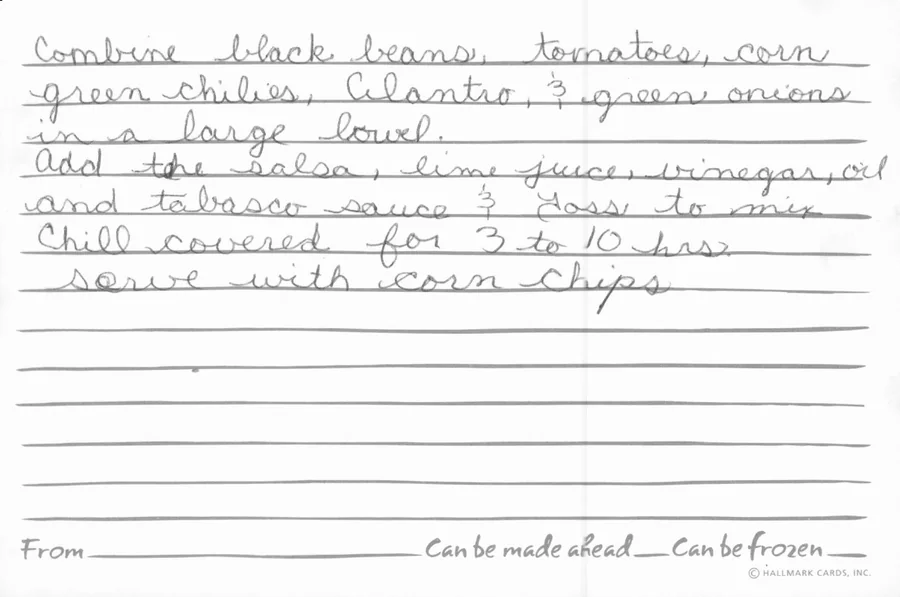 Combine black beans, tomatoes, corn
green chilies, Cilantro, & green onions
in a large bowl.
Add the salsa, lime juice, vinegar, oil
and tabasco sauce & Toss to mix
Chill covered for 3 to 10 hrs.
serve with corn chips
From Can be made ahead Can be frozen
© HALLMARK CARDS, INC.